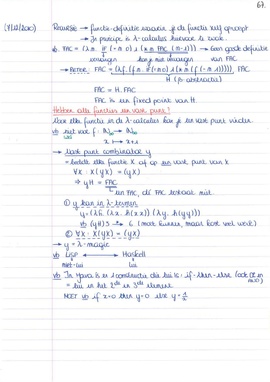 67.
(4/12/2010) Recursie → functie-definitie waarin je de functie zelf oproept
→ In principe is λ-calculus hiervoor te zwak.
vb. FAC = (λn. if (= n 0) 1 (× n FAC (- n 1)))) → Geen goede definitie
vervangen kan je niet vervangen van FAC
→ Beter: FAC = (λf. (λn. if (= n 0) 1 (× n (f (- n 1))))) FAC
H (β-abstractie)
FAC = H. FAC
FAC is een fixed point van H.
Hebben alle functies een vast punt?
Voor elke functie in de λ-calculus kan je een vast punt vinden.
vb niet voor f: ℕ → ℕ
x ↦ x+1
→ Vast punt combinator y
= beeldt elke functie X af op een vast punt van X
∀X : X(yX) = (yX)
⇒ yH = FAC
een FAC, dé FAC bestaat niet
① y kan in λ-termen
y = (λh. (λx. h(xx)) (λy. h(yy)))
vb (yH) 3 → 6
② ∀X: X(yX) = (yX)
→ y = λ-magie
vb LISP ↔ Haskell
niet-lui lui
vb In Java is er 1 constructie die lui is: if-then-else
= lui in het 2de en 3de element
MOET vb if x=0 then y=0 else y=1/x